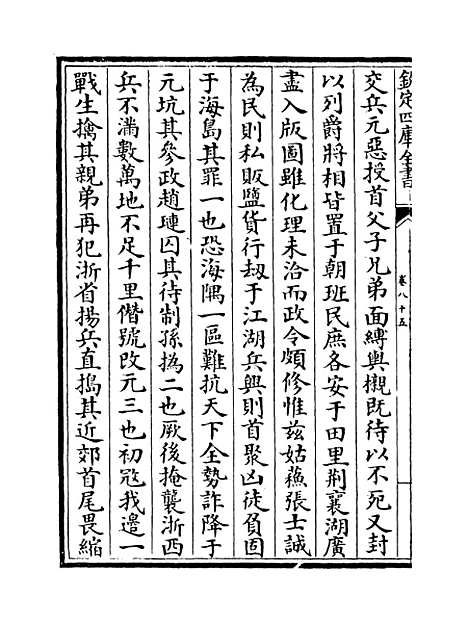 欽定四庫全書
卷八十五
交兵元惡授首父子兄弟面縛輿櫬既待以不死又封
以列爵將相皆置于朝班民庶各安于田里荆襄湖廣
盡入版圖雖化理未洽而政令頗修惟兹姑蘓張士誠
為民則私販鹽貨行刼于江湖兵興則首聚凶徒負固
于海島其罪一也恐海隅一區難抗天下全勢詐降于
元坑其參政趙璉囚其待制孫撝二也厥後掩襲浙西
兵不滿數萬地不足千里僭號改元三也初冦我邊一
戰生擒其親弟再犯浙省揚兵直搗其近郊首尾畏縮